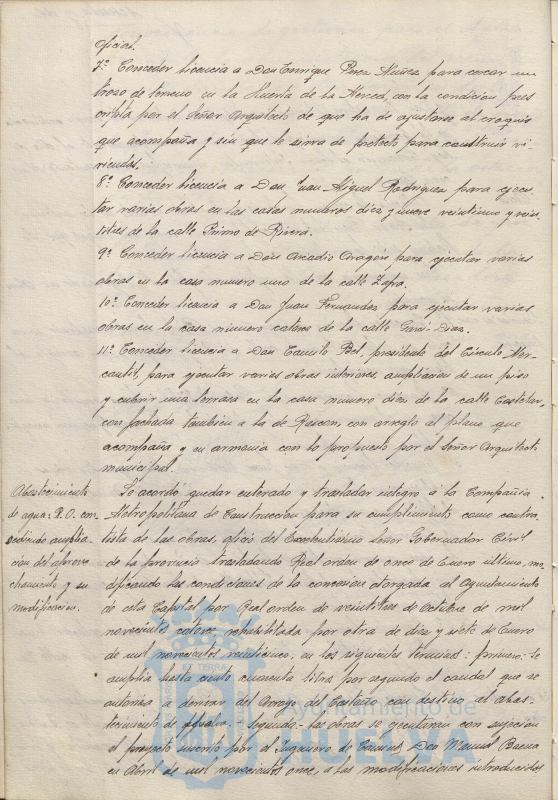 oficial.
7º Conceder licencia a Don Enrique Perez Nuñez para cercar un
trozo de terreno en la Huerta de la Merced, con la condicion pres
cripta por el Señor Arquitecto de que ha de ajustarse al croquis
que acompaña y sin que le sirva de pretexto para construir vi-
viendas.
8º Conceder licencia a Don Juan Miguel Rodriguez para ejecu-
tar varias obras en las casas numeros diez y nueve veintiuno y vein
titres de la calle Primo de Rivera.
9º Conceder licencia a Don Arcadio Aragón para ejecutar varias
obras en la casa numero uno de la calle Zafra.
10º Conceder licencia a Don Juan Fernandez para ejecutar varias
obras en la casa numero catorce de la calle Diaz.
11º Conceder licencia a Don Camilo Bel, presidente del Circulo Mer-
cantil, para ejecutar varias obras interiores, ampliacion de un piso
y cubrir una terraza en la casa numero diez de la calle Castelar,
con fachada tambien a la de Rascon, con arreglo al plano que
acompaña y en armonia con lo propuesto por el Señor Arquitecto
municipal.
Abastecimiento
de agua: R.O. con
cediendo amplia
cion del aprove
chamiento y su
modificacion.
Se acordó quedar enterado y trasladar integro a la Compañia
Metropolitana de Construccion para su cumplimiento como contra
tista de las obras, oficio del Excelentisimo Señor Gobernador Civil
de la provincia trasladando Real orden de once de Enero ultimo, mo
dificando las condiciones de la concesion otorgada al Ayuntamiento
de esta Capital por Real orden de veintitres de Octubre de mil
novecientos catorce rehabilitada por otra de diez y siete de Enero
de mil novecientos veinticinco, en los siguientes terminos: primero: se
amplia hasta ciento cuarenta litros por segundo el caudal que se
autoriza a derivar del Arroyo del Castaño con destino al abas
tecimiento de Huelva. Segundo: las obras se ejecutaran con sujecion
al proyecto suscrito por el Ingeniero de Caminos Don Manuel Baena
en Abril de mil novecientos once, a las modificaciones introducidas
Ayuntamiento de
HUELVA